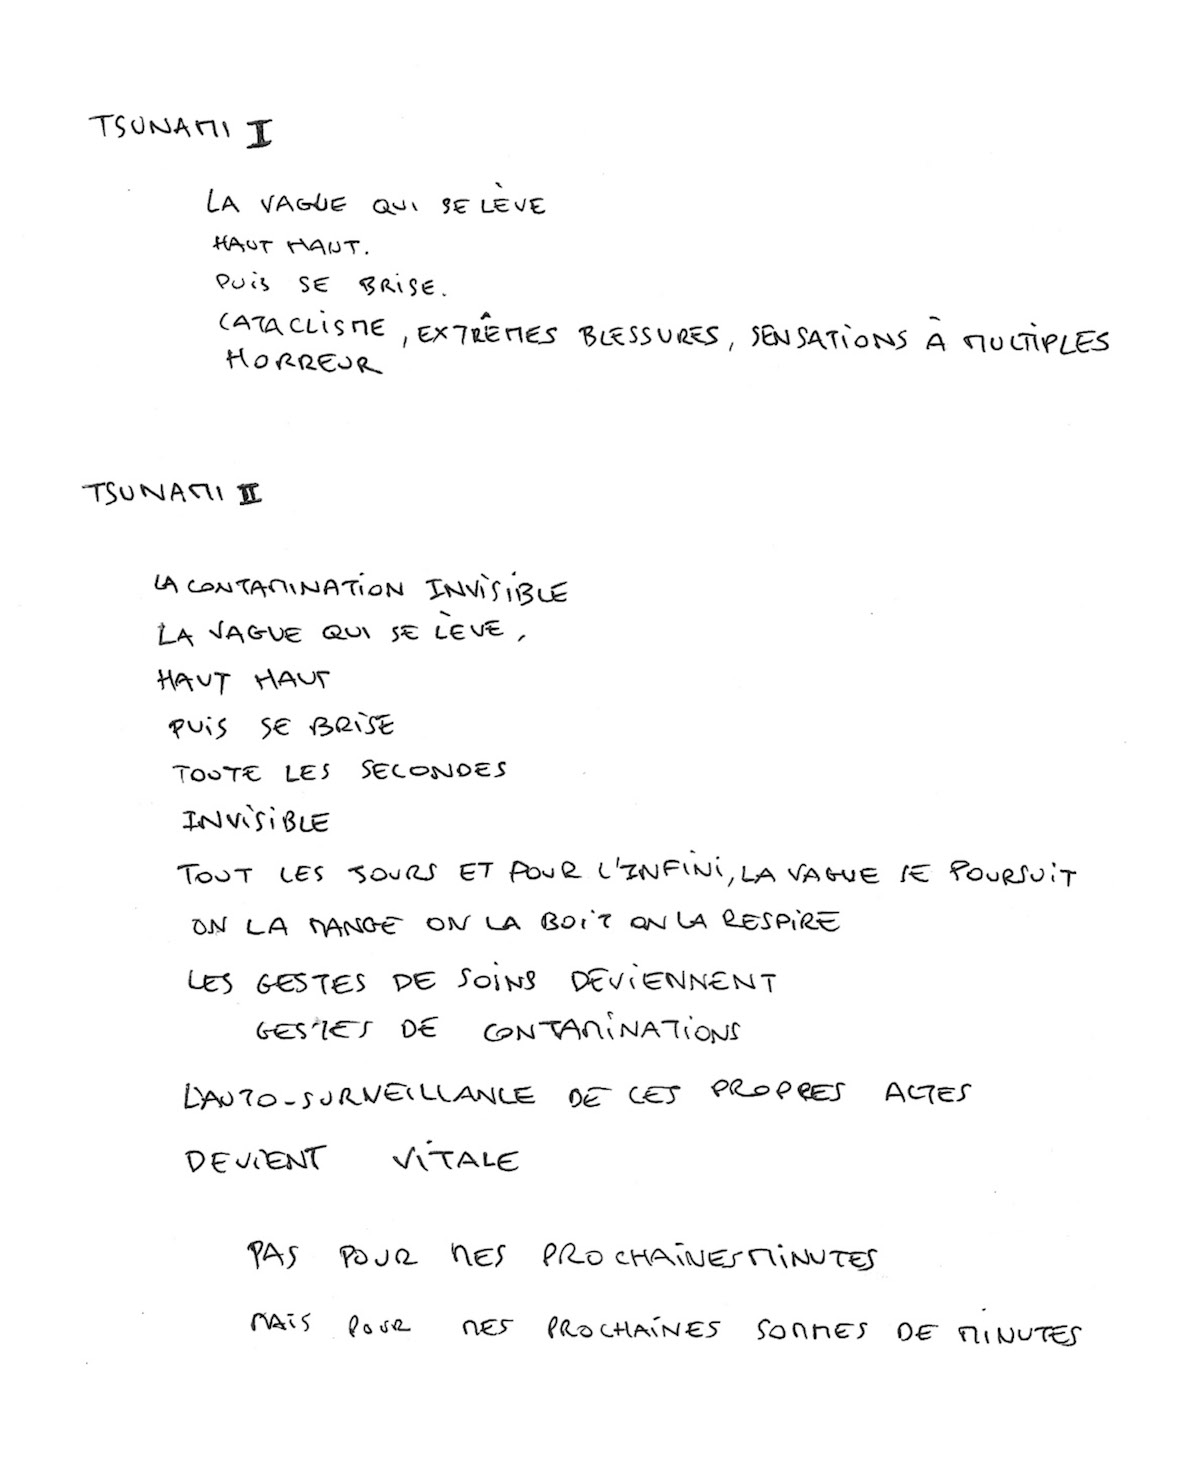 TSUNAMI I
LA VAGUE QUI SE LÈVE
HAUT HAUT.
PUIS SE BRISE.
CATACLISME, EXTRÊMES BLESSURES, SENSATIONS À MULTIPLES
HORREUR
TSUNAMI II
LA CONTAMINATION INVISIBLE
LA VAGUE QUI SE LÈVE,
HAUT HAUT
PUIS SE BRISE
TOUTE LES SECONDES
INVISIBLE
TOUT LES JOURS ET POUR L'INFINI, LA VAGUE SE POURSUIT
ON LA MANGE ON LA BOIT ON LA RESPIRE
LES GESTES DE SOINS DEVIENNENT
GESTES DE CONTAMINATIONS
L'AUTO-SURVEILLANCE DE CES PROPRES ACTES
DEVIENT VITALE
PAS POUR MES PROCHAINES MINUTES
MAIS POUR MES PROCHAINES SOMMES DE MINUTES